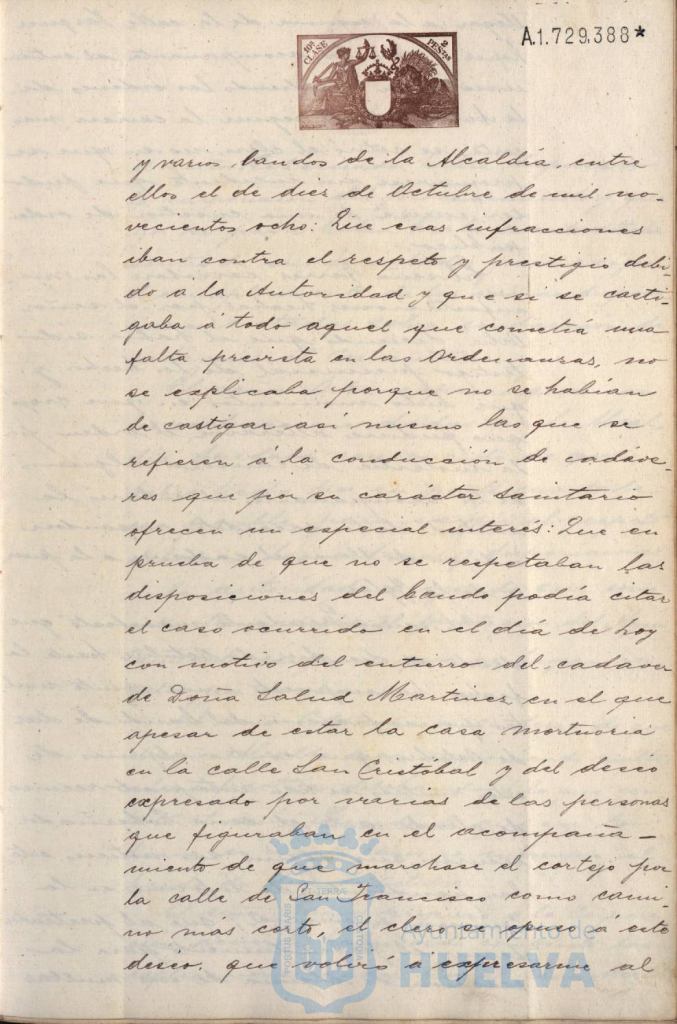 A.1.729,388*
10ª CLASE
2 PESETAS
y varios bandos de la Alcaldía, entre
ellos el de diez de Octubre de mil no-
vecientos ocho: Que esas infracciones
iban contra el respeto y prestigio debi-
do á la Autoridad y que si se casti-
gaba á todo aquel que cometiá una
falta prevista en las Ordenanzas, no
se explicaba porque no se habían
de castigar asi mismo las que se
refieren á la conducción de cadáve-
res que por su carácter sanitario
ofrecen un especial interés: Que en
prueba de que no se respetaban las
disposiciones del bando podía citar
el caso ocurrido en el día de hoy
con motivo del entierro del cadaver
de Doña Salud Martinez en el que
apesar de estar la casa mortuoria
en la calle San Cristóbal y del deseo
expresado por varias de las personas
que figuraban en el acompaña-
miento de que marchase el cortejo por
la calle de San Francisco como cami-
no más corto, el clero se opuso á este
deseo, que volvió a expresarme al
Ayuntamiento de
HUELVA